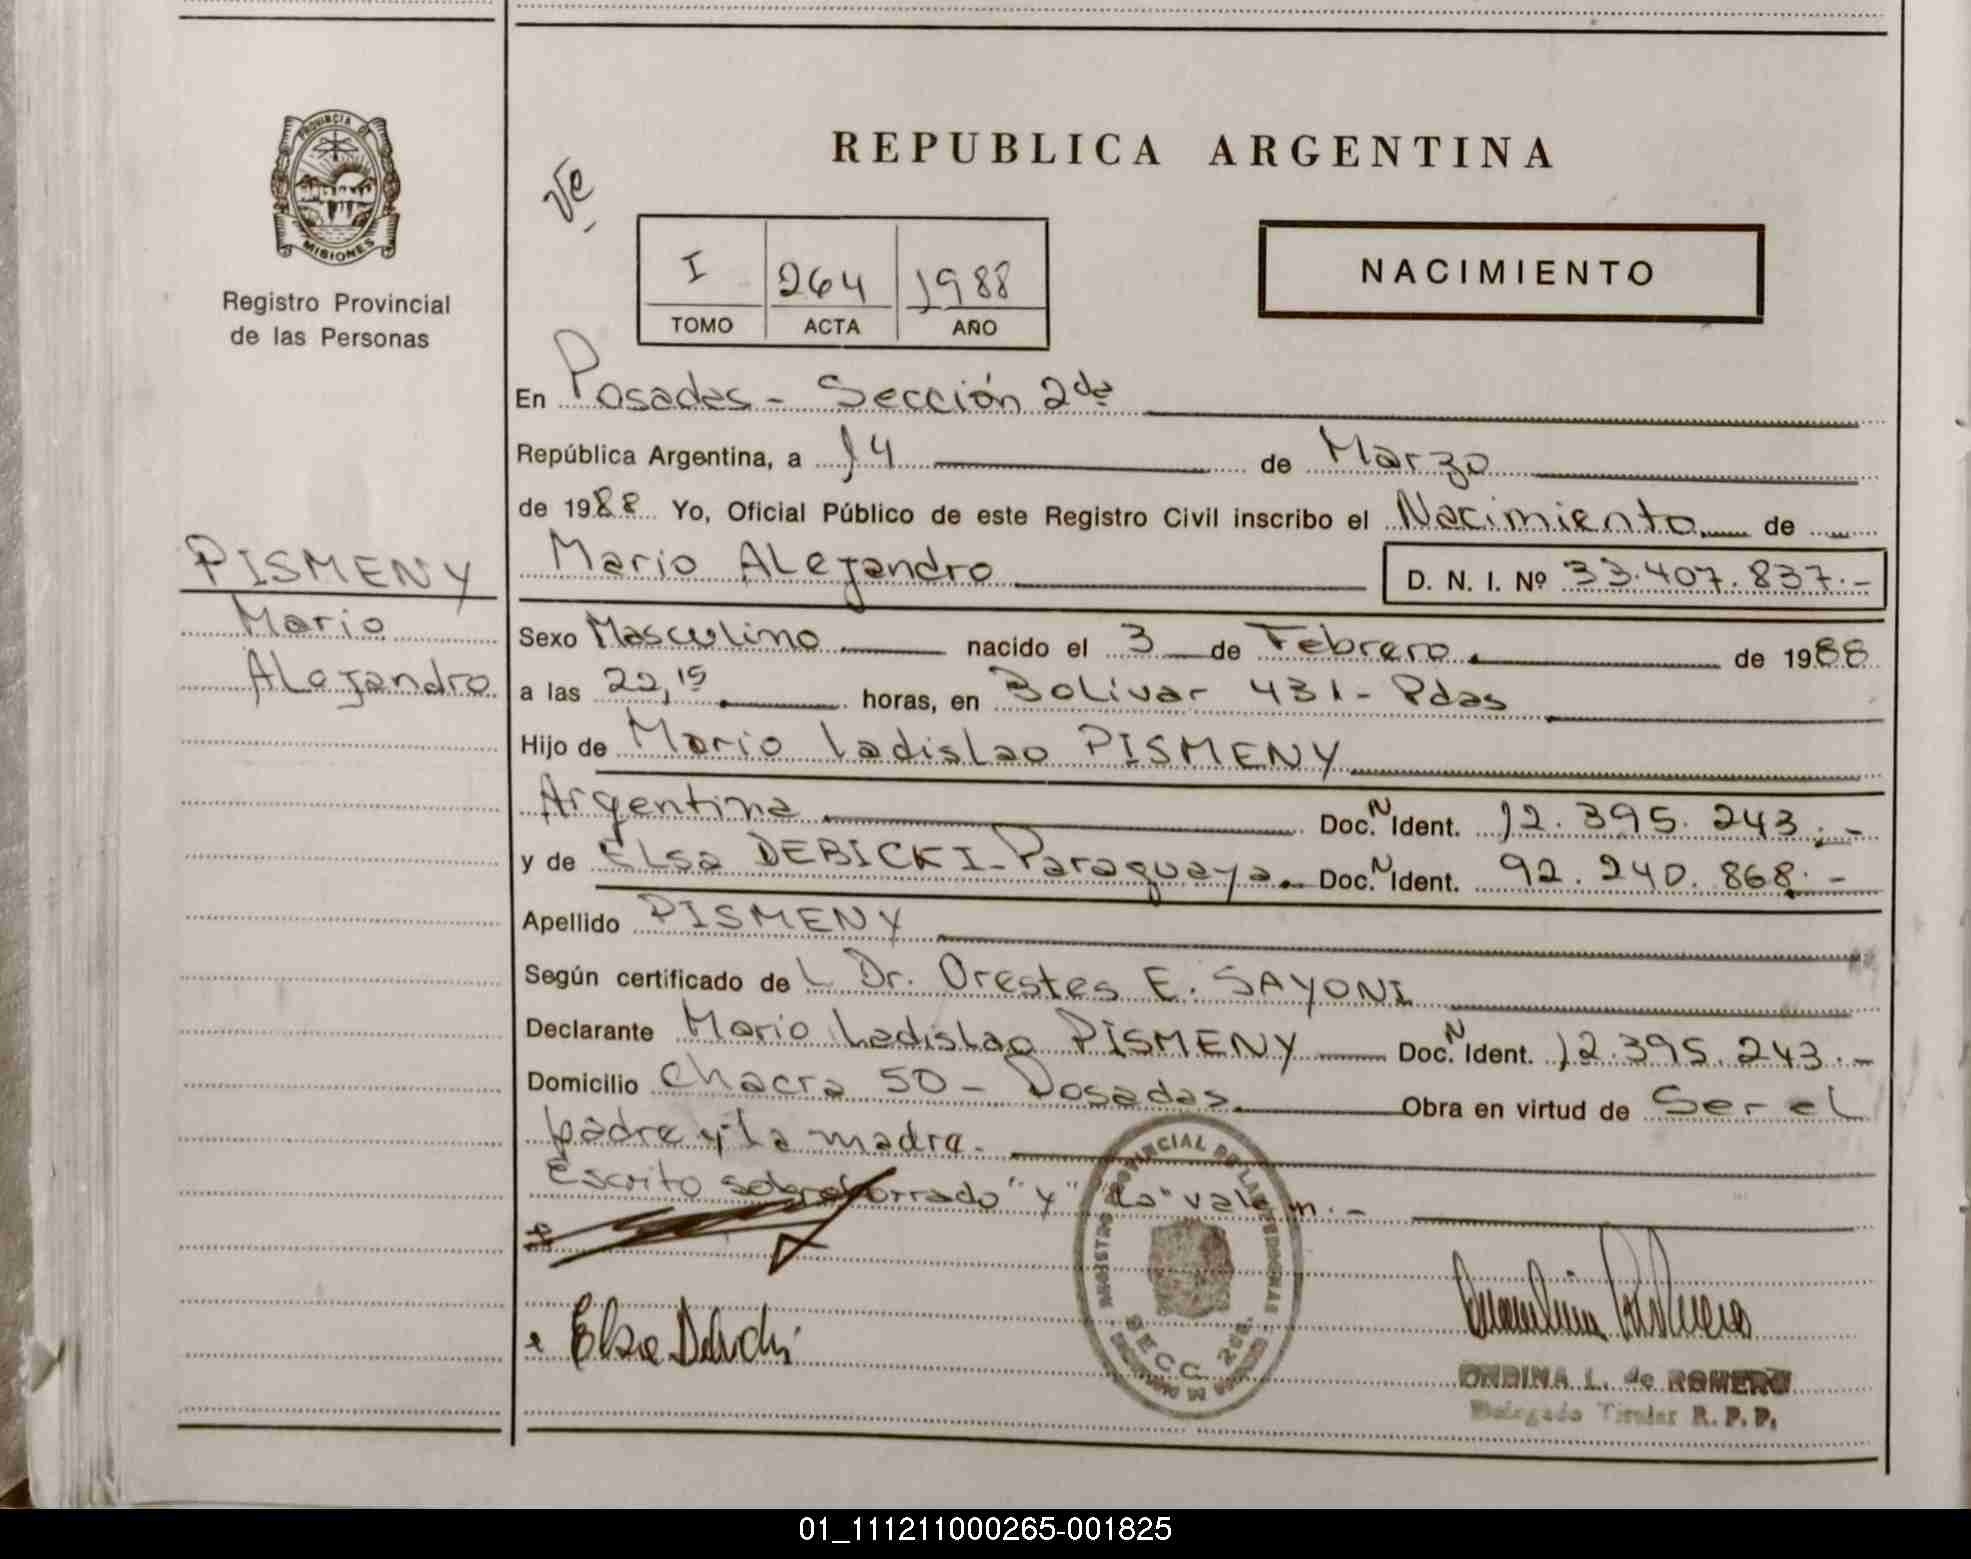 PROVINCIA DE
MISIONES
Registro Provincial
de las Personas
PISMENY
Mario
Alejandro
REPUBLICA ARGENTINA
I 264 1988
TOMO ACTA AÑO
NACIMIENTO
En Posadas - Sección 2da
República Argentina, a 14 de Marzo
de 1988 Yo, Oficial Público de este Registro Civil inscribo el Nacimiento de
Mario Alejandro D. N. I. Nº 33.407.837.-
Sexo Masculino nacido el 3 de Febrero de 1988
a las 22,15 horas, en Bolivar 431 - Pdas
Hijo de Mario Ladislao PISMENY
Argentina Doc. N Ident. 12.395.243.-
y de Elsa DEBICKI - Paraguaya. Doc. N Ident. 92.240.868.-
Apellido PISMENY
Según certificado de L Dr. Orestes E. SAYONI
Declarante Mario Ladislao PISMENY Doc. N Ident. 12.395.243.-
Domicilio Chacra 50 - Posadas Obra en virtud de Ser el
padre y la madre.
Escrito sobreborrado "y" "La" valen.-
REGISTRO PROVINCIAL DE LAS PERSONAS
SECC. 2da.
Elsa Debicki
ONDINA L. de ROMERO
Delegado Titular R. P. P.
01_111211000265-001825